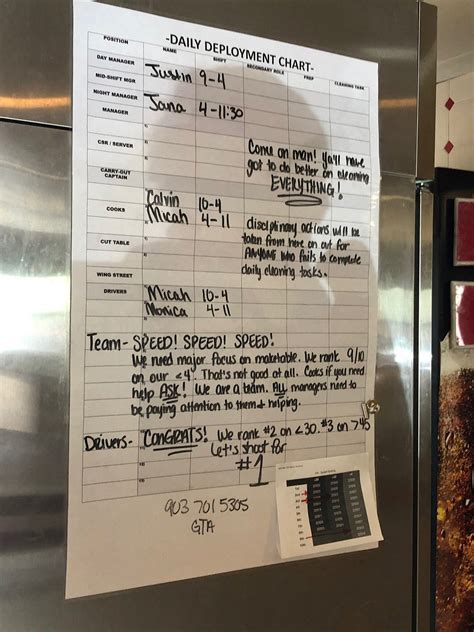 -DAILY DEPLOYMENT CHART-
POSITION NAME SHIFT SECONDARY ROLE PREP CLEANING TASK
DAY MANAGER Justin 9-4
MID-SHIFT MGR
NIGHT MANAGER Jana 4-11:30
MANAGER
CSR / SERVER
Come on man! Ya'll have
got to do better on cleaning
EVERYTHING!
CARRY-OUT
CAPTAIN
Calvin 10-4
COOKS Micah 4-11
disciplinary actions will be
taken from here on out for
ANYONE who fails to complete
daily cleaning tasks.
CUT TABLE
WING STREET
DRIVERS Micah 10-4
Monica 4-11
Team- SPEED! SPEED! SPEED!
We need major focus on maketable. We rank 9/10
on our <4. That's not good at all. Cooks if you need
help ASK! We are a team. ALL managers need to
be paying attention to them + helping.
Drivers- CONGRATS! We rank #2 on <30. #3 on 745
Let's shoot for
#1
903 701 5305
GTA